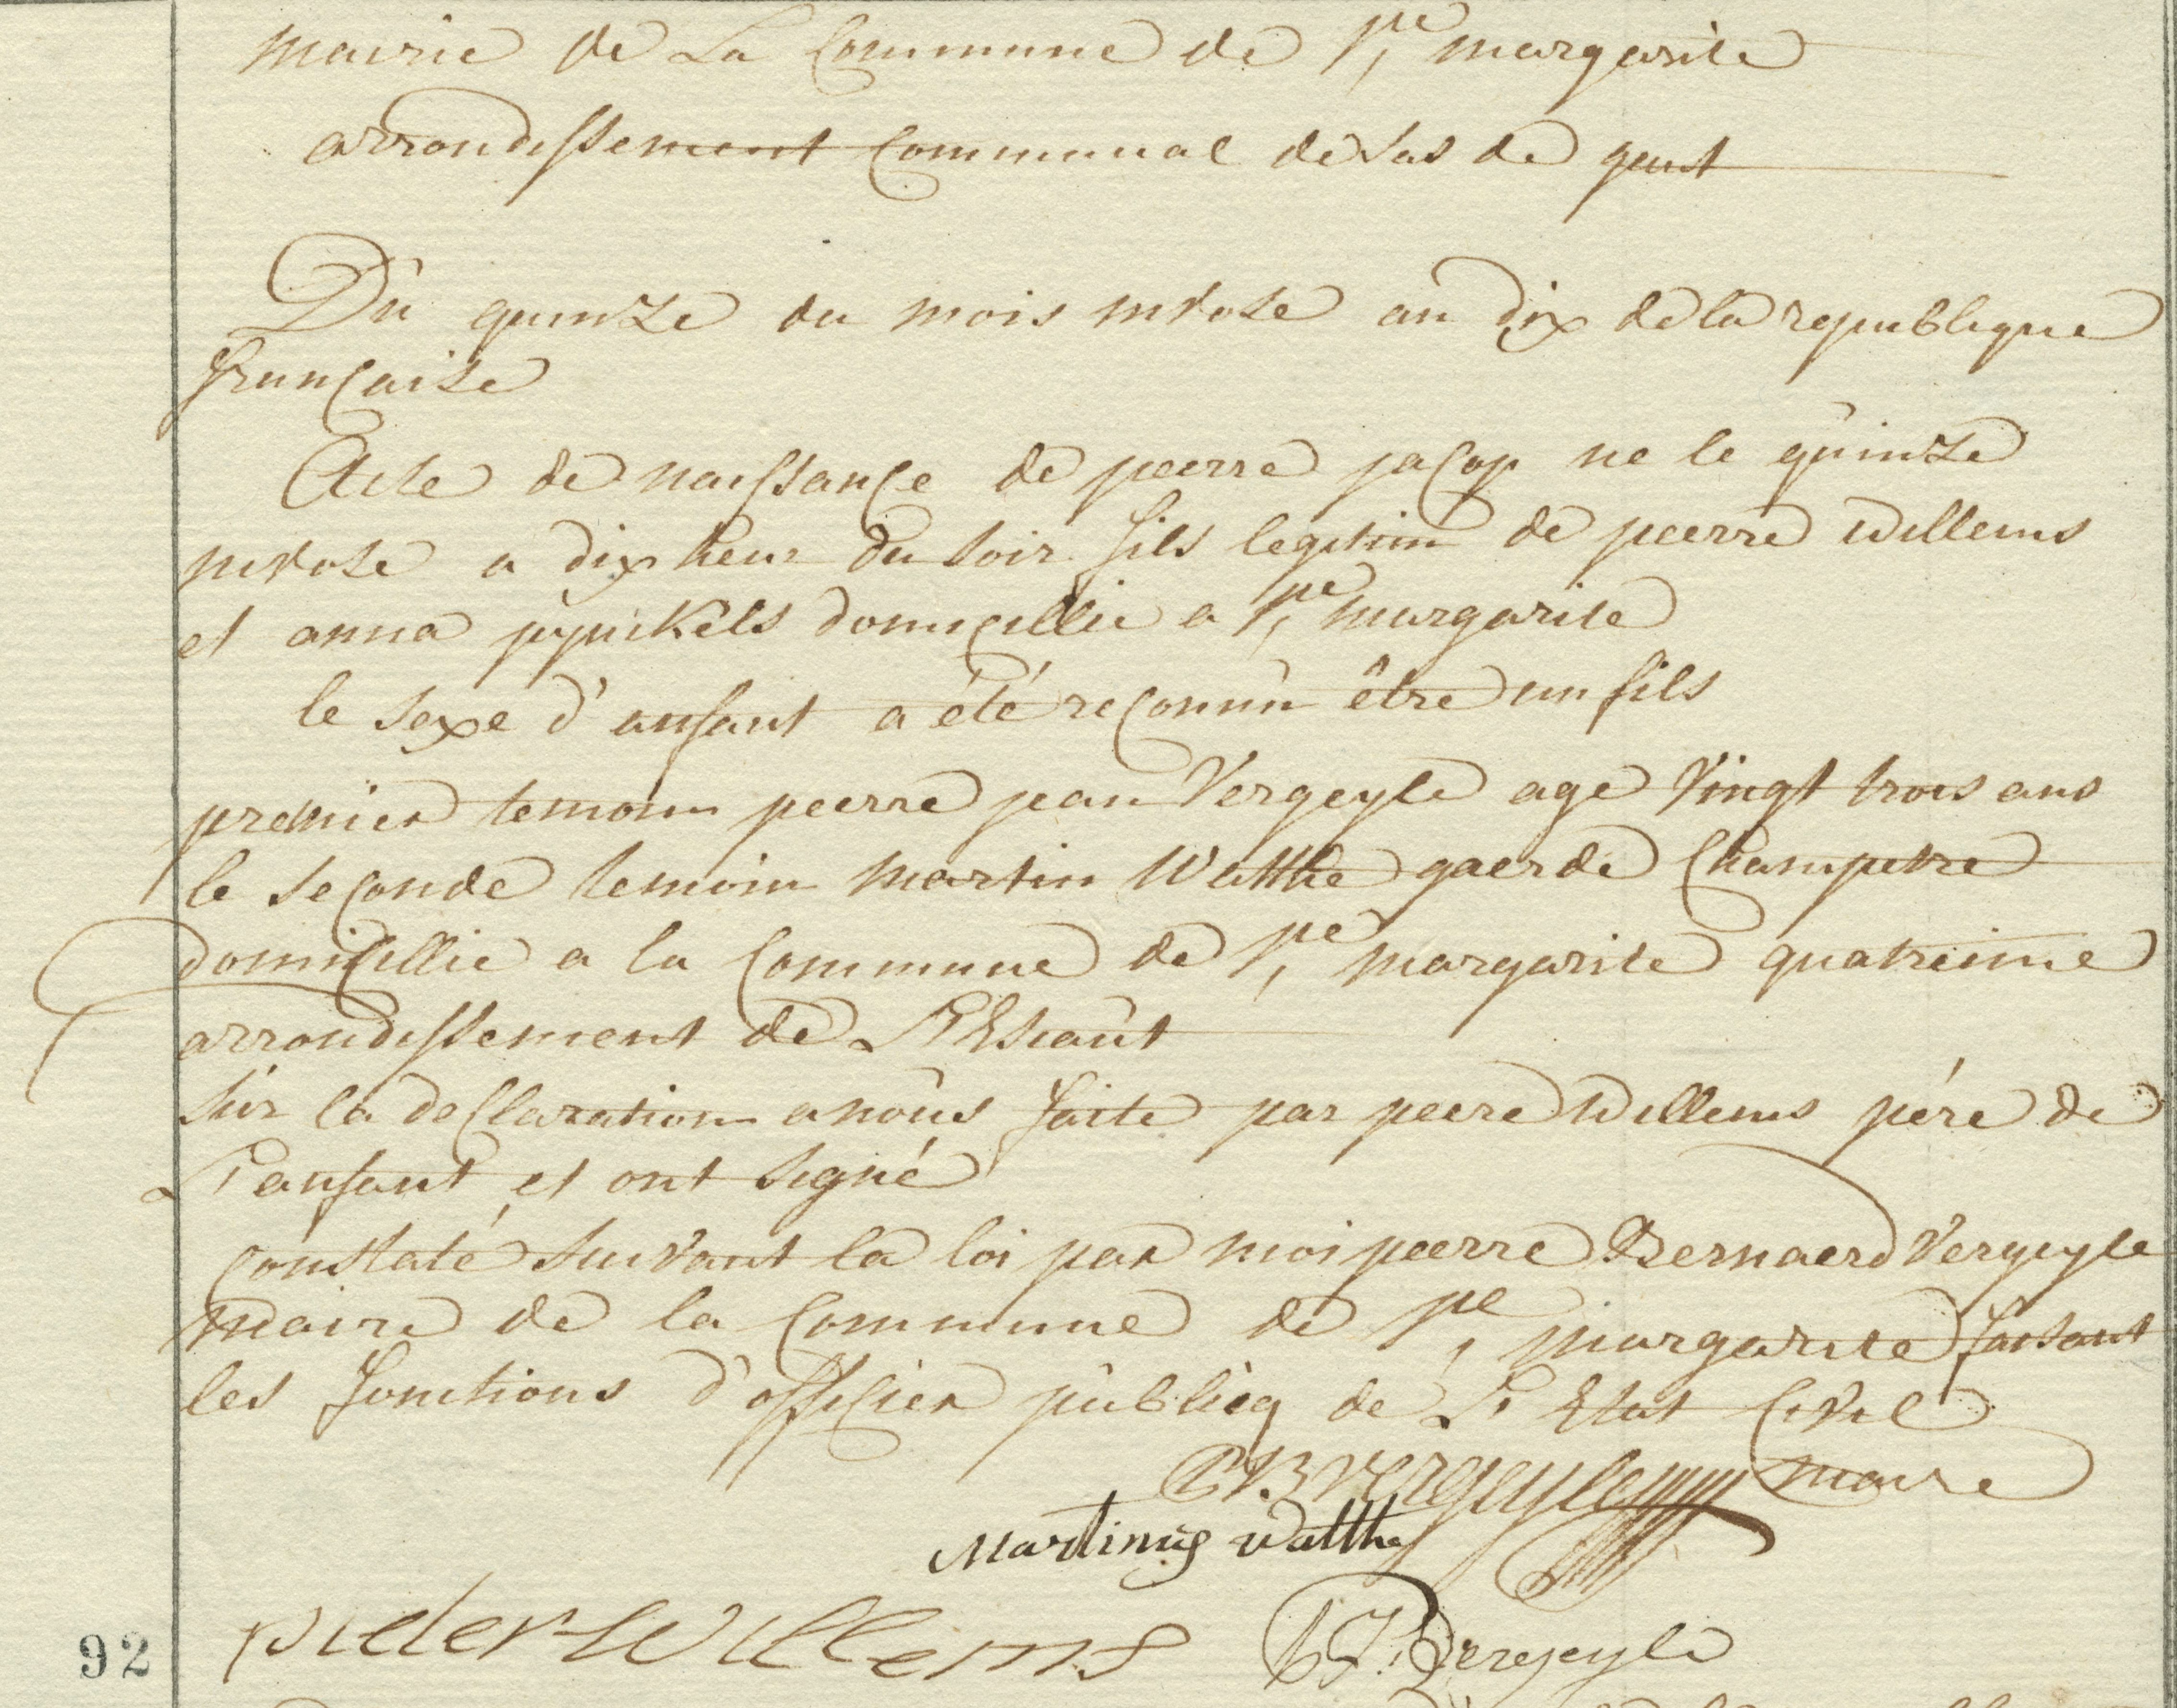 mairie de La Commune de Ste margarite
arrondissement Communal de Sas de gent
Du quinze du mois nivose an dix de la republique
française
Acte de naissance de pierre jacop ne le quinze
nivose a dix heur du soir fils legitim de pierre willems
et anna pynkels domicillie a Ste margarite
le sexe d'anfant a été reconnu être un fils
premier temoin pierre jean Vergeyle age Vingt trois ans
le seconde temoin martin Watthe gaerde Champetre
domicillie a la Commune de Ste margarite quatreime
arrondissement de L'Escaut
sur la declaration a nous faite par piere Willems pére de
L'anfant et ont signé
Constaté suivant la loi par moi pierre Bernaerd Vergeyle
maire de la Commune de Ste margarite faisant
les fonctions d'officier publicq de L'Etat Civil
PB Vergeyle maire
Martinus watthe
pieter Willems PJ Vergeyle
92